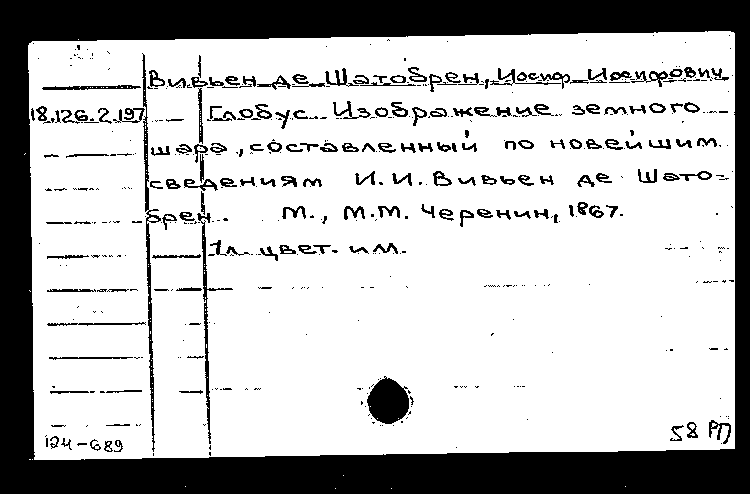 Вивьен де Шатобрен, Иосиф Иосифович
18.126.2.197 Глобус. Изображение земного
шара, составленный по новейшим
сведениям И.И. Вивьен де Шато-
брен. М., М.М. Черенин, 1867.
1л. цвет. ил.
124-689
58 РП